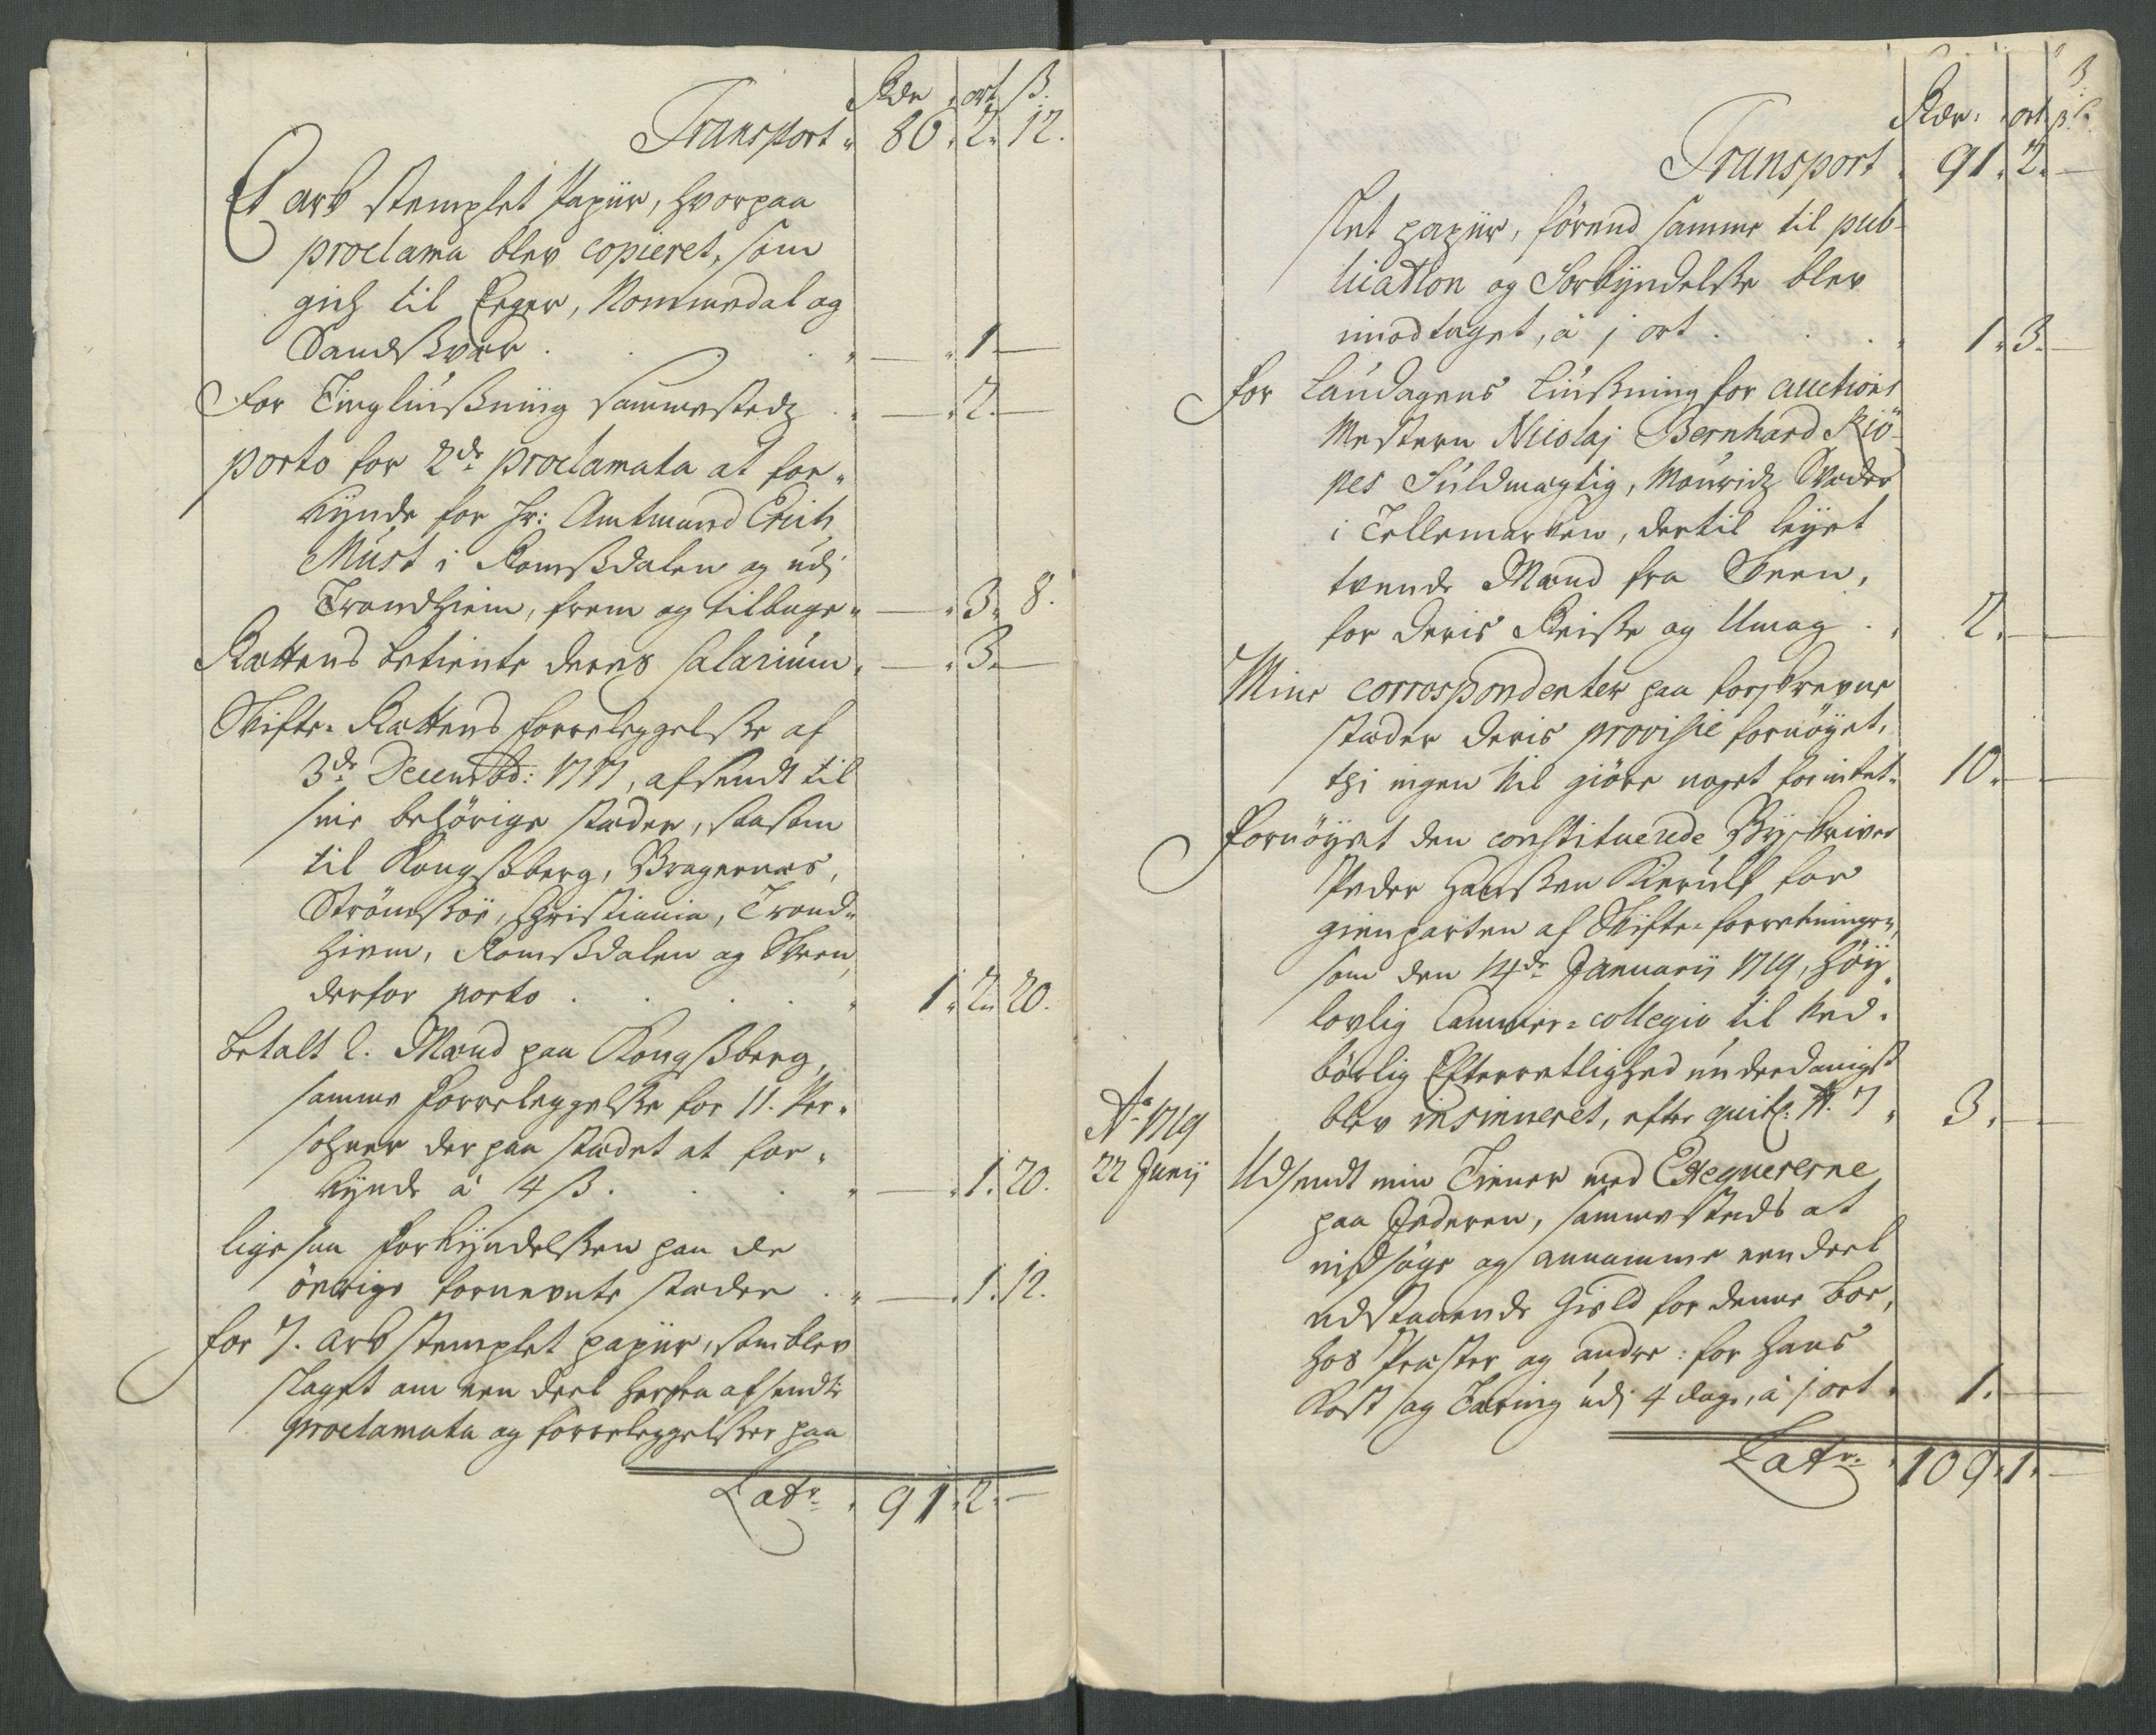 Rdr ort ß.
Transport " 86. 2. 12.
Et ark stemplet Papiir, hvorpaa
proclama blev copieret, som
gich til Eeger, Nommedal og
Sandsvær . . . " — . 1. —
For Tinglüsning sammestedz . " — . 2. —
porto for 2de proclamata at for-
kynde for Hr: Amtmand Erich
Must i Romsdalen og udj
Trondhiem, frem og tilbage " — . 3. 8.
Rættens betiente deres salarium . — . 3. —
Skifte-Rættens forreleggelse af
3de Decembr: 1717, afsendt til
sine behörige stæder, saasom
til Kongsberg, Bragernæs,
Strömsöe, Christiania, Trond-
hiem, Romsdalen og Skeen,
derfor porto . . . . " 1. 2. 20.
betalt 2. Mænd paa Kongsberg,
samme forreleggelse for 11. Per-
sohner der paa stædet at for-
kynde â 4 ß. . . " — . 1. 20.
ligesaa forkyndelsen paa de
övrige fornevnte stæder . " — . 1. 12.
for 7. ark stemplet papiir, som blev
slaget om een deel herfra afsendte
proclamata og forreleggelser paa
Latr. . 91. 2. —
Rdr. ort ß.
Transport . 91. 2. —
slet papiir, förend samme til pub-
lication og Forkyndelse blev
imodtaget, â 1 ort . . . 1. 3. —
for Laudagens Liusning for auctions
Mesteren Nicolaj Bernhard Kiö-
pes Fuldmægtig, Mouridz Veder
i Tellemarken, dertil leyet
tvende Mænd fra Skeen,
for deris Reise og Umag . . 2. — —
Mine correspondenter paa forskrevne
stæder deris provisie fornöyet,
thi ingen vil giöre noget for intet. 10. — —
Fornöyet den constituerede Byskriver
Peder Hansen Kierulf for
gienparten af Skifte-forretningen,
som den 14de Januarij 1719, höy-
lovlig Cammer-collegio til ved-
börlig Efterretlighed underdanigst
blev insinueret, efter quit: N. 7 " 3. — —
Ao 1719
22 Junij Udsendt min Tiener med Exequererne
paa Jederen, sammesteds at
eridsöge og annamme een deel
udstaaende Gield for denne boe,
hos Præster og andre: for hans
Kost og Tæring udj 4 dage, â 1 ort . 1. — —
Latr. . 109. 1. —